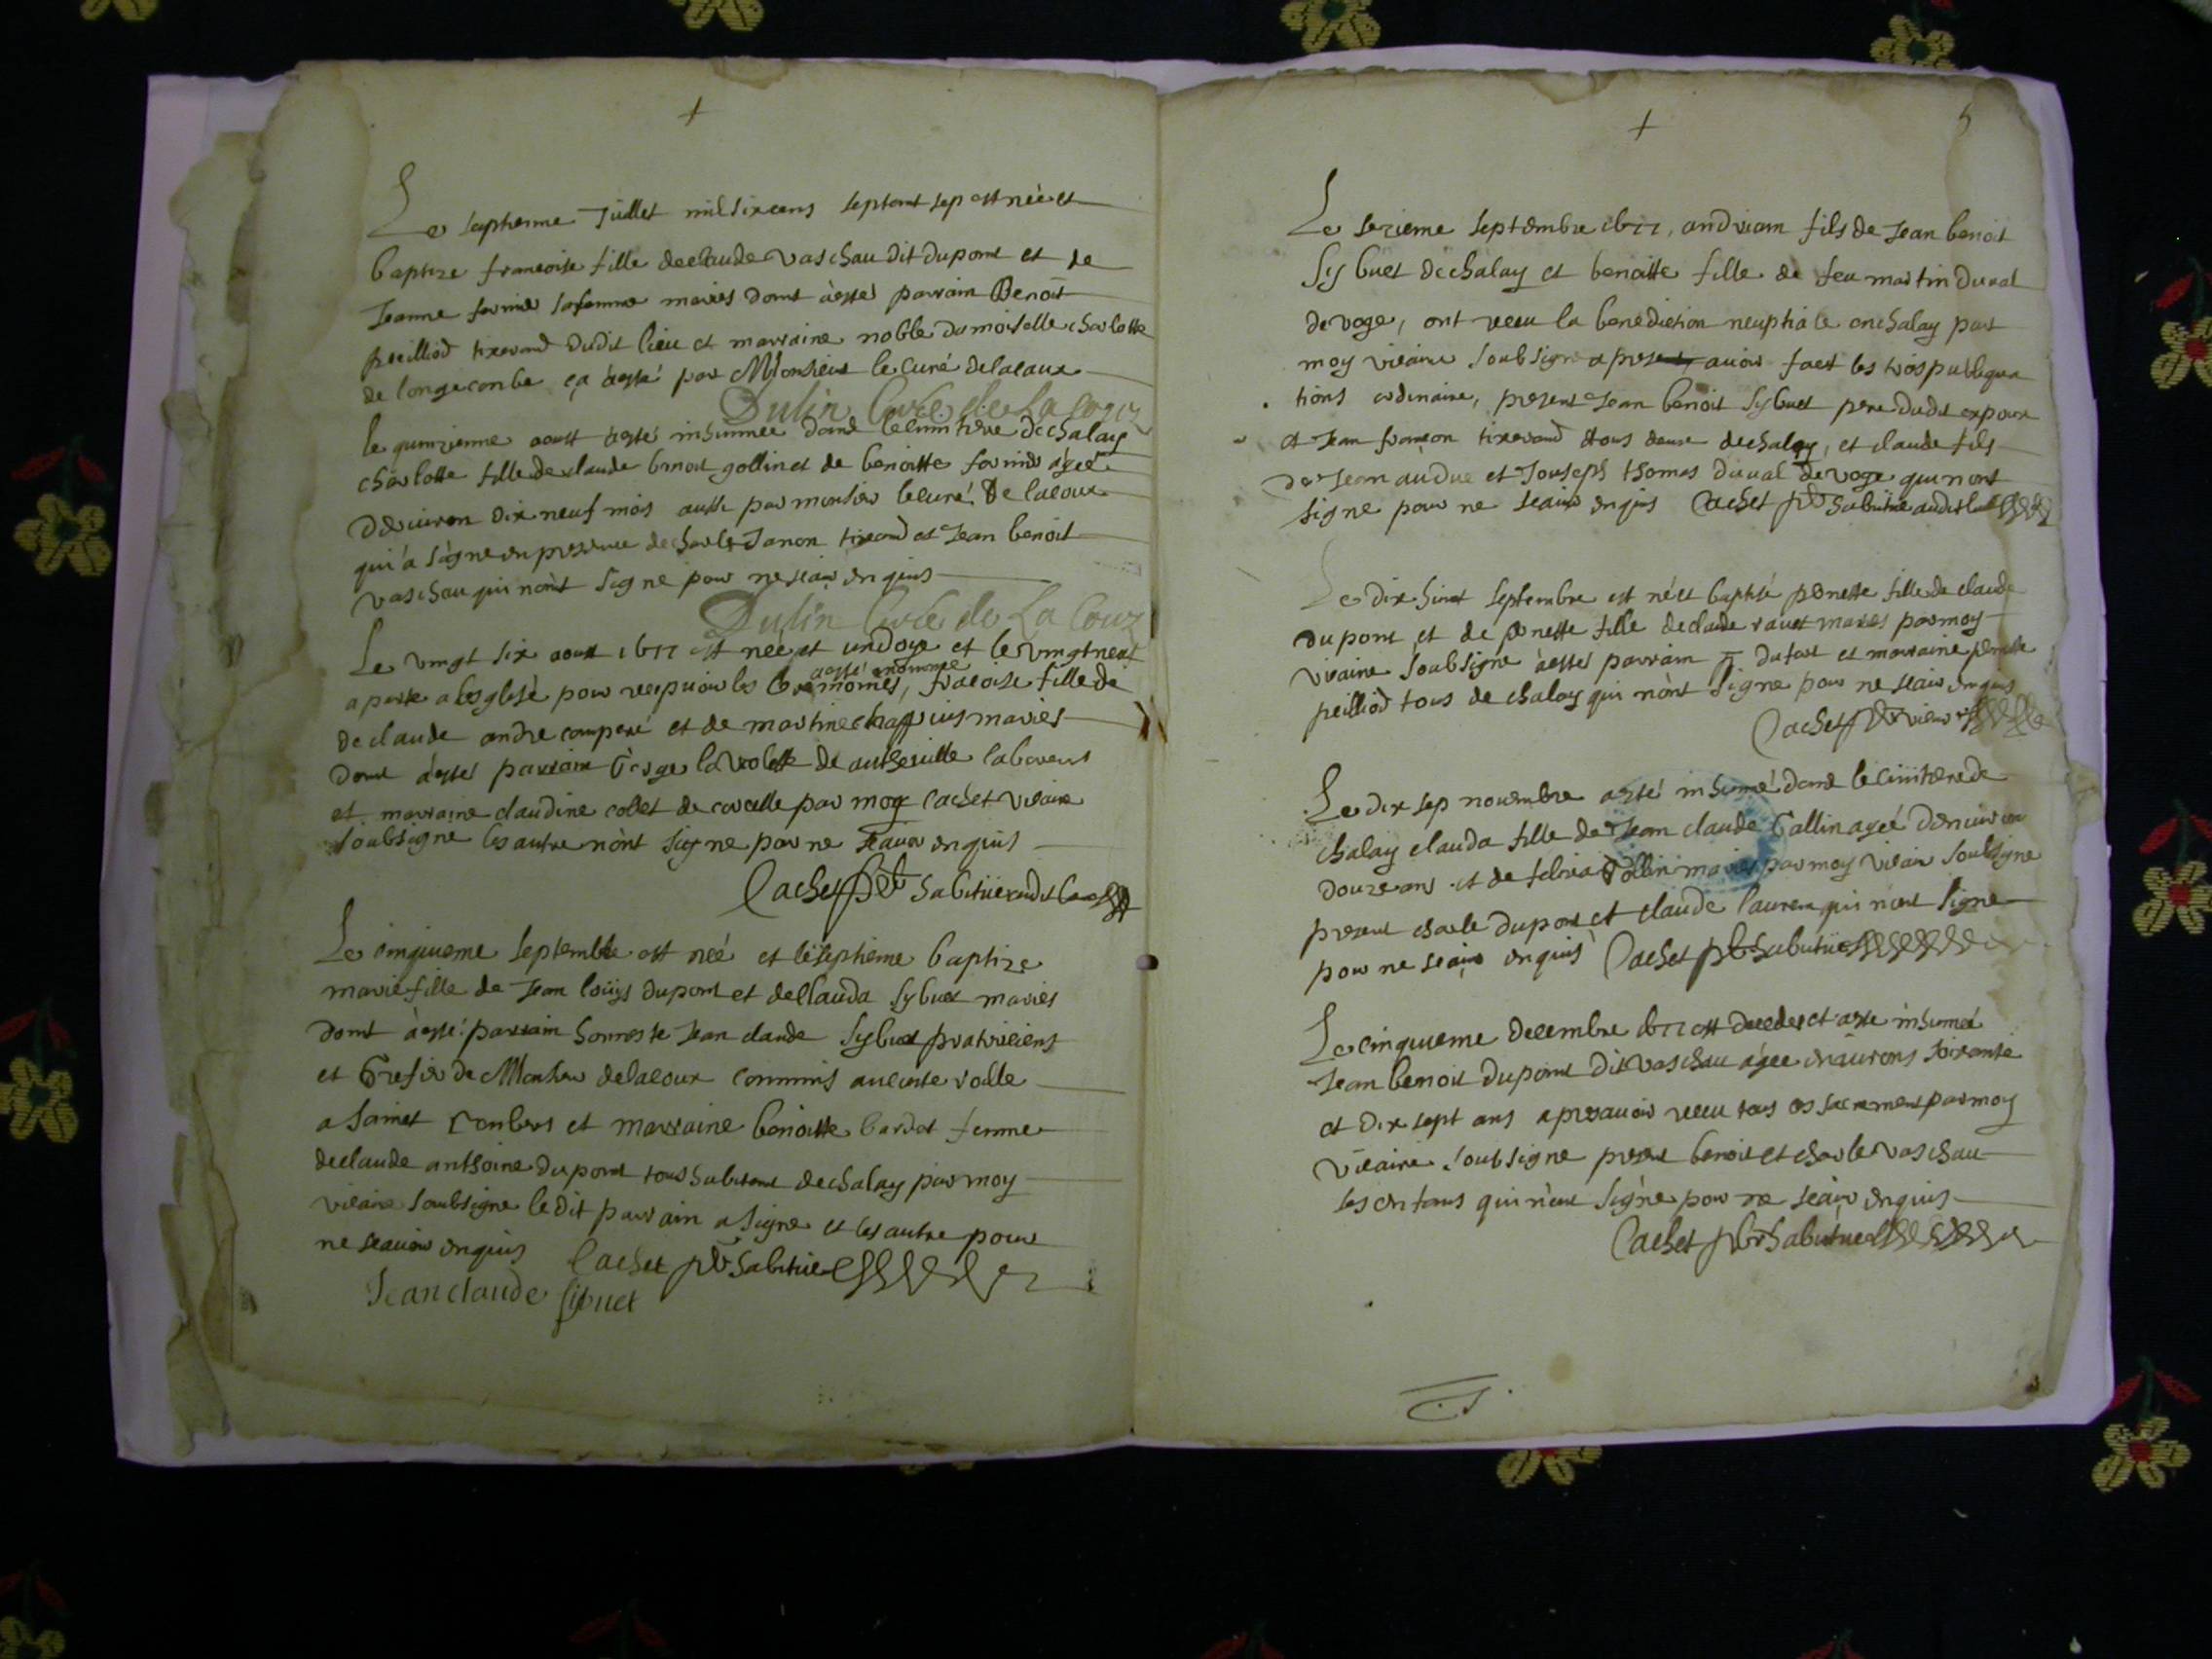 Le septheme Juillet mil sixcens septant sep est née et
baptize francoise fille declaude vaschau dit dupont et de
Jeanne fornier safemme maries dont àesté parrain Benoit
peilliod tixerand dudit lieu et marraine noble damoiselle charlotte
de longecombe ça àesté par Monsieur le curé delacoux
Dulin Curé de La Couz
le quinzienme aoust àesté inhumée dans le cimitiere dechalay
charlotte fille de claude benoit gollinet de benoitte fornier àgeé
denviron dix neuf mois aussi par monsier lecuré de lacoux
qui à signe en presence de charle Janon tixerand et Jean benoit
vaschau qui nònt signe pour nesçavoir enquis
Dulin Curé de La Couz
Le vingt six aoust 1677 est néé et undoye et le vingtneuf
aesté nommée
a porte a lesglise pour recepvoir les Ceremonies, fracoise fille de
de claude andre compere et de martine maries
dont àesté parrain la violette de autheville laboreur
et marraine claudine colet de corcelle par moy cachet vicaire
soubsigne les autre nònt signe pour ne scavoir enquis
Cachet pbr habitué audit lieu
Le cinquieme septembre est néé et leseptheme baptize
marie fille de Jean loüys dupont et deClauda sybuet maries
dont à esté parrain honneste Jean claude sybuet praticiens
et Grefier de Monsieur delacoux commis
a sainct et marraine benoitte bardet femme
declaude anthoine dupont tous habitant dechalay par moy
vicaire soubsigne ledit parrain a signe et les autre pour
ne scavoir enquis Cachet pbr habitué
Jean claude sybuet
+
+
5
Le sezieme septembre 1677, andream fils de Jean benoit
sybuet dechalay et benoitte fille de feu martin duval
devoge, ont receu la benediction neuptiale enchalay par
moy vicaire soubsigne apres avoir faict les trois publiqua
tions ordinaire, present Jean benoit sybuet pere dudit expoux
et Jean françon tixerand tous deux dechalay, et claude fils
de Jean et Jouseph thomas duval devoge qui nont
signe pour ne scavoir enquis Cachet pbr habitué audit lieu
Le dix huict septembre est néé et baptisé pernette fille de claude
dupont et de pernette fille declaude ravet maries par moy
vicaire soubsigne àesté parrain dufort et marraine pernette
peilliod tous de chalay qui nònt signe pour ne scavoir enquis
Cachet pbr vicaire
Le dix sep novembre aesté inhumé dans le cimitiere de
chalay clauda fille de Jean claude Gallin ageé denviron
douze ans et de Gollin maries par moy vicaire soubsigne
present charle dupont et claude laurent qui nont signe
pour ne scavoir enquis Cachet pbr habitué
Le cinquieme decembre 1677 est decedes et àesté inhumé
Jean benoit dupont dit vaschau agee environs soixante
et dix sept ans apres avoir receu tous es sacrement par moy
vicaire soubsigne present benoit et charle vaschau
ses enfans qui nont signe pour ne scavoir enquis
Cachet pbr habitué